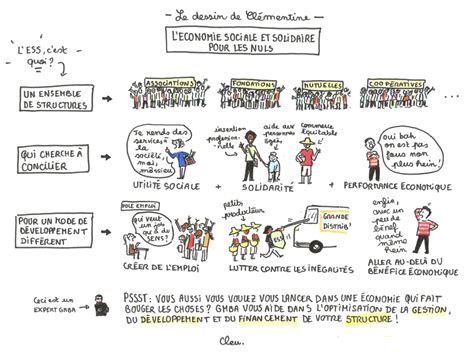 - Le dessin de Clémentine -
L'ECONOMIE SOCIALE ET SOLIDAIRE
POUR LES NULS
L'ESS, c'est
quoi ?
UN ENSEMBLE
DE STRUCTURES
ASSOCIATIONS
FONDATIONS
MUTUELLES
COOPÉRATIVES
QUI CHERCHE À
CONCILIER
Je rends des
services à
la
société,
moi,
môssieu
UTILITÉ SOCIALE
+
insertion
profession-
nelle
aide aux
personnes
âgées
commerce
équitable
SOLIDARITÉ
+
oui bah
on est pas
fous non
plus hein!
PERFORMANCE ÉCONOMIQUE
POUR UN MODE DE
DÉVELOPPEMENT
DIFFÉRENT
POLE EMPLOI
qui veut
un job
qui a du
SENS?
CRÉER DE L'EMPLOI
petits
producteurs
ESS
GRANDE
DISTRIB'
LUTTER CONTRE LES INÉGALITÉS
enfin,
avec un
peu de
bénef
quand
même
hein
ALLER AU-DELÀ DU
BÉNÉFICE ÉCONOMIQUE
Ceci est un
EXPERT GMBA
PSSST: VOUS AUSSI VOUS VOULEZ VOUS LANCER DANS UNE ÉCONOMIE QUI FAIT
BOUGER LES CHOSES? GMBA VOUS AIDE DANS L'OPTIMISATION DE LA GESTION,
DU DÉVELOPPEMENT ET DU FINANCEMENT DE VOTRE STRUCTURE!
Clem.